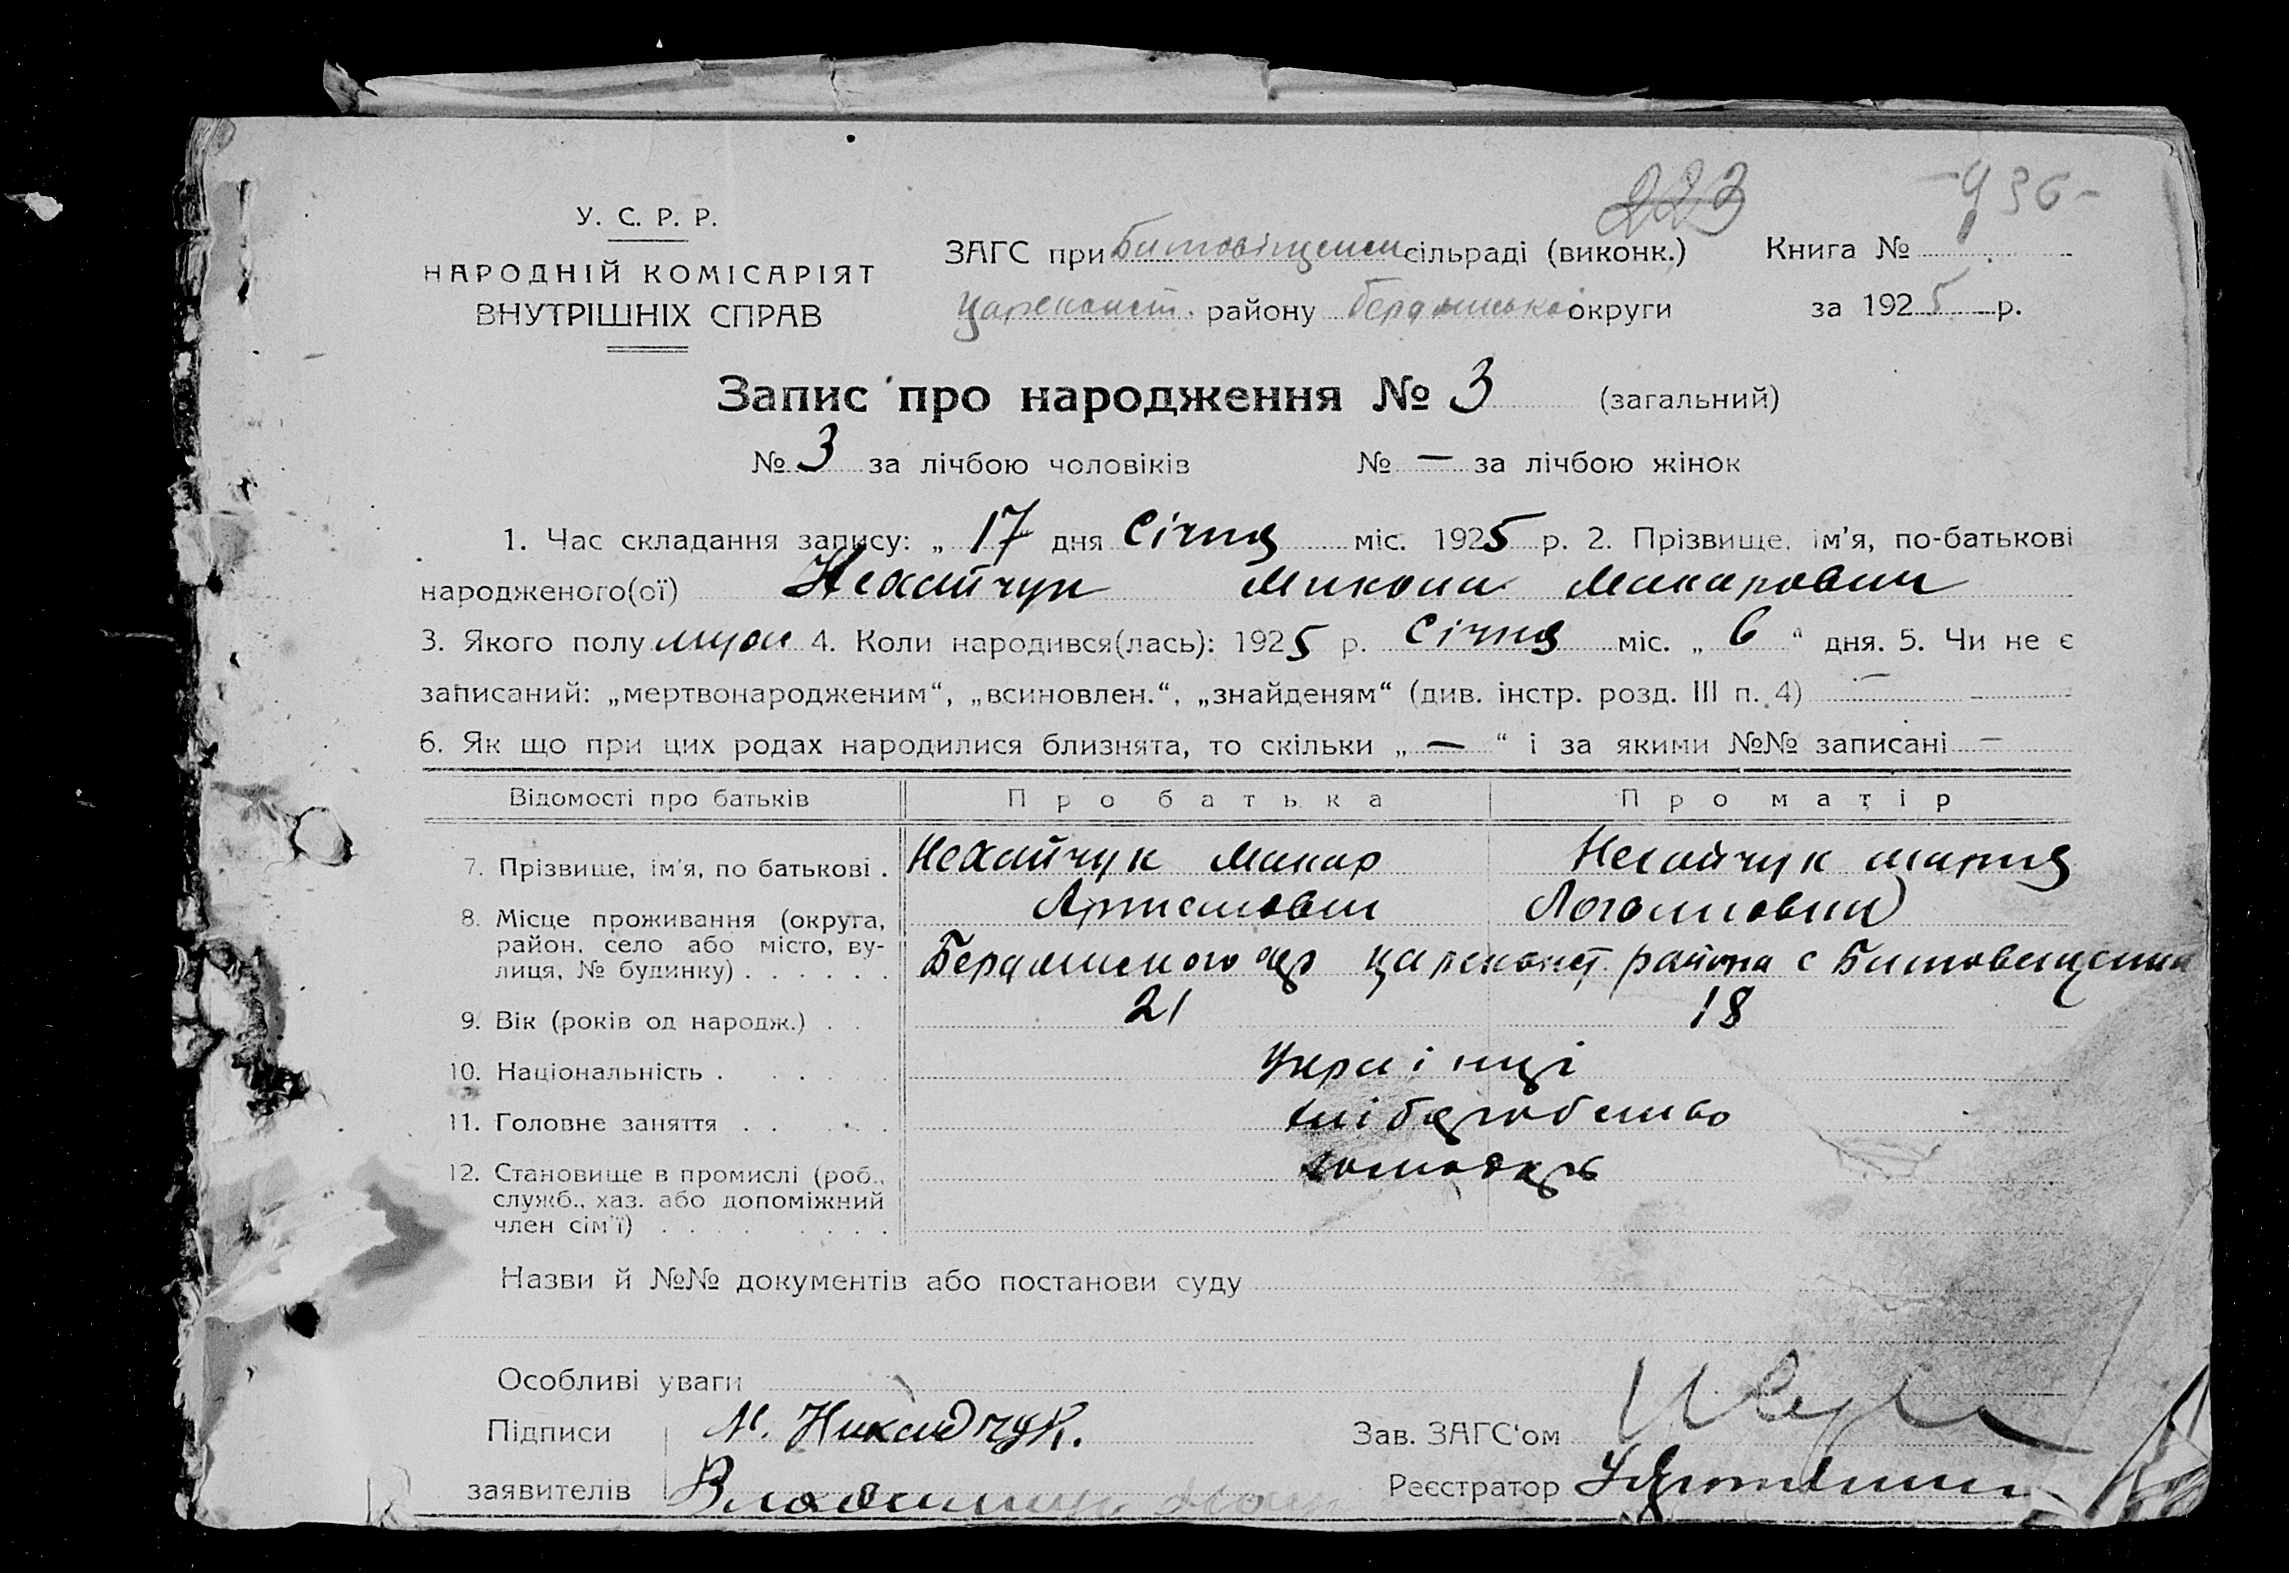 223 - 936 -
У. С. Р. Р.
НАРОДНІЙ КОМІСАРІЯТ
ВНУТРІШНІХ СПРАВ
ЗАГС при сільраді (виконк.) Книга №
Цареконст. району округи за 1925 р.
Запис про народження № 3 (загальний)
№ 3 за лічбою чоловіків № — за лічбою жінок
1. Час складання запису: „ 17 дня Січня міс. 1925 р. 2. Прізвище, ім'я, по-батькові
народженого(ої) Нехайчук Микола Макарович
3. Якого полу муж 4. Коли народився(лась): 1925 р. Січня міс. „ 6 “ дня. 5. Чи не є
записаний: „мертвонародженим“, „всиновлен.“, „знайденям“ (див. інстр. розд. III п. 4) —
6. Як що при цих родах народилися близнята, то скільки „ — “ і за якими №№ записані —
Відомості про батьків Про батька Про матір
7. Прізвище, ім'я, по батькові . Нехайчук Макар Нехайчук Мария
Артемович
8. Місце проживання (округа,
район, село або місто, ву-
лиця, № будинку) . . . . . . Бердянського цареконст. района с
9. Вік (років од народж.) . . 21 18
10. Національність . . . . . Україінці
11. Головне заняття . . . . . хліборобство
12. Становище в промислі (роб.,
служб., хаз. або допоміжний
член сім'ї) . . . . . . . .
Назви й №№ документів або постанови суду
Особливі уваги
Підписи М. Зав. ЗАГС'ом
заявителів Реєстратор